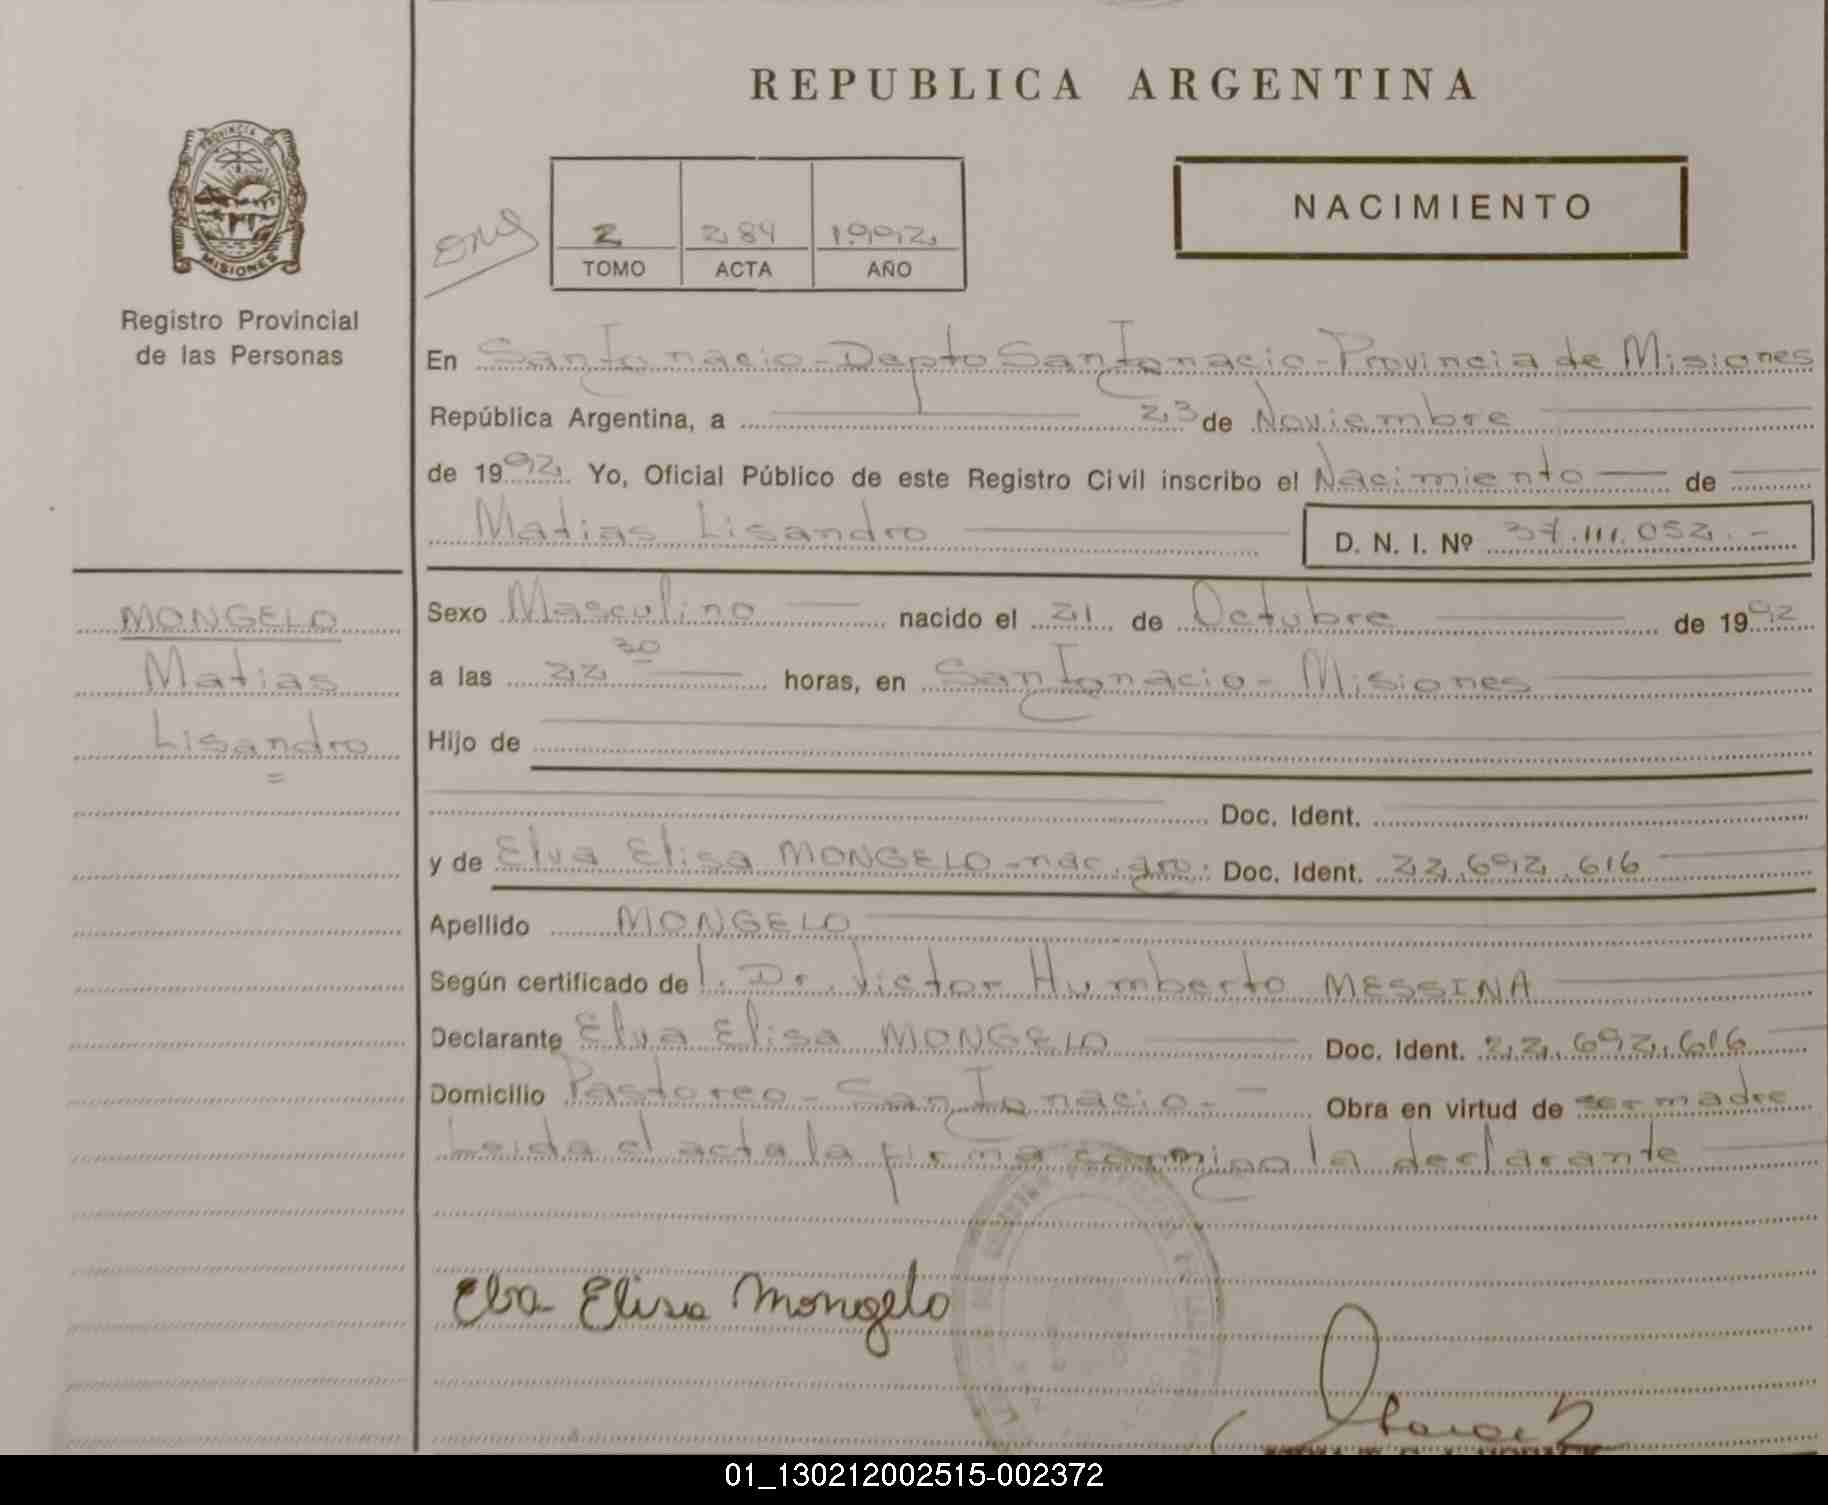 REPUBLICA ARGENTINA
PROVINCIA DE
MISIONES
Registro Provincial
de las Personas
NACIMIENTO
2 284 1992
TOMO ACTA AÑO
En San Ignacio - Depto San Ignacio - Provincia de Misiones
República Argentina, a 23 de Noviembre
de 1992 Yo, Oficial Público de este Registro Civil inscribo el Nacimiento de
Matias Lisandro D. N. I. Nº 37.111.052.-
MONGELO
Matias
Lisandro
=
Sexo Masculino nacido el 21 de Octubre de 1992
a las 22 30 horas, en San Ignacio - Misiones
Hijo de
Doc. Ident.
y de Elva Elisa MONGELO - nac. arg. Doc. Ident. 22.692.616
Apellido MONGELO
Según certificado de l. Dr. Victor Humberto MESSINA
Declarante Elva Elisa MONGELO Doc. Ident. 22.692.616
Domicilio Pastoreo - San Ignacio. - Obra en virtud de ser madre
Leida el acta la firma conmigo la declarante
Elva Elisa Mongelo
01_130212002515-002372